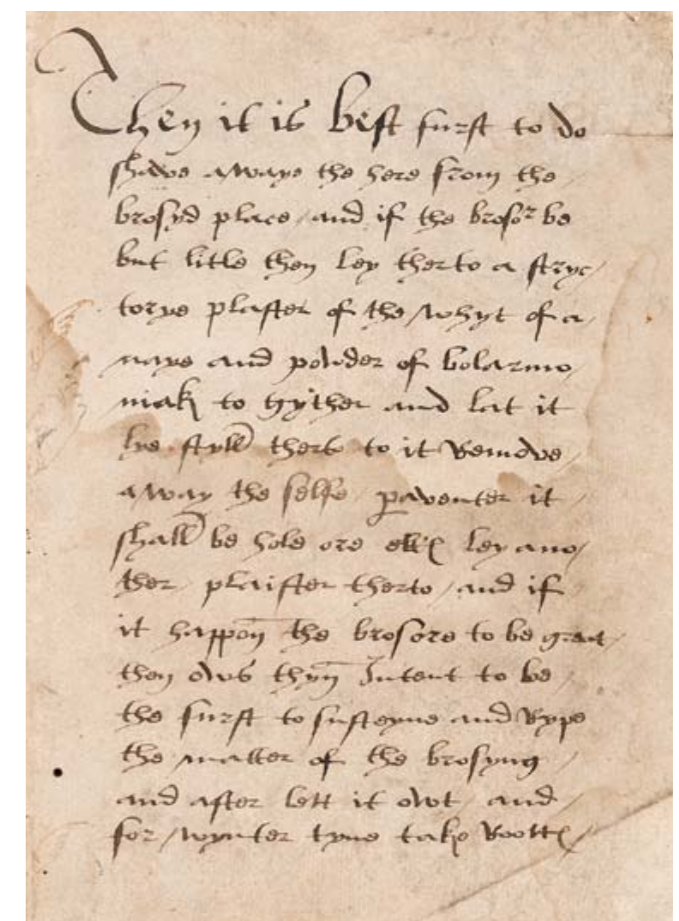 Then it is best furst to do
shave awaye the here from the
brosyd place / and if the brosor be
but litle then ley therto a stryc /
torye plaster of the / whyt of a /
naye and powder of bolarmo /
niak to gyther and lat it
lye styll there to it remove /
away the selfe / paventer it /
shall be hole ore elles ley ano /
ther / plaister therto / and if /
it happen the brosore to be great /
then ows thyn Intent to be /
the furst to susteyne and rype
the matter of the brosyng /
and after lett it owt / and /
for / wynter tyme take roottes /